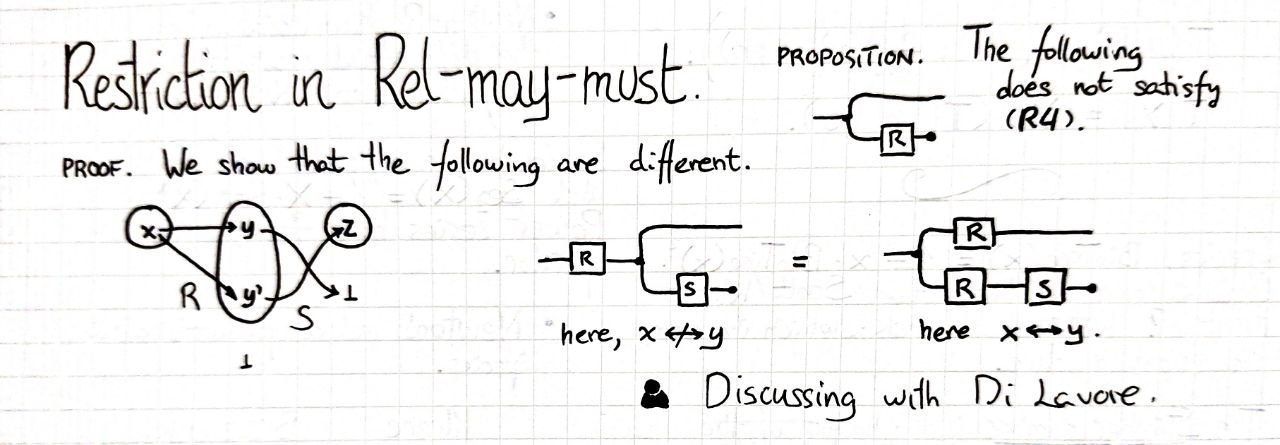 Restriction in Rel-may-must.
PROPOSITION. The following
does not satisfy
(R4).
R
PROOF. We show that the following are different.
x y z
R y' S ⊥
⊥
R S
=
R
R S
here, x ↮ y
here x ↔ y.
Discussing with Di Lavore.